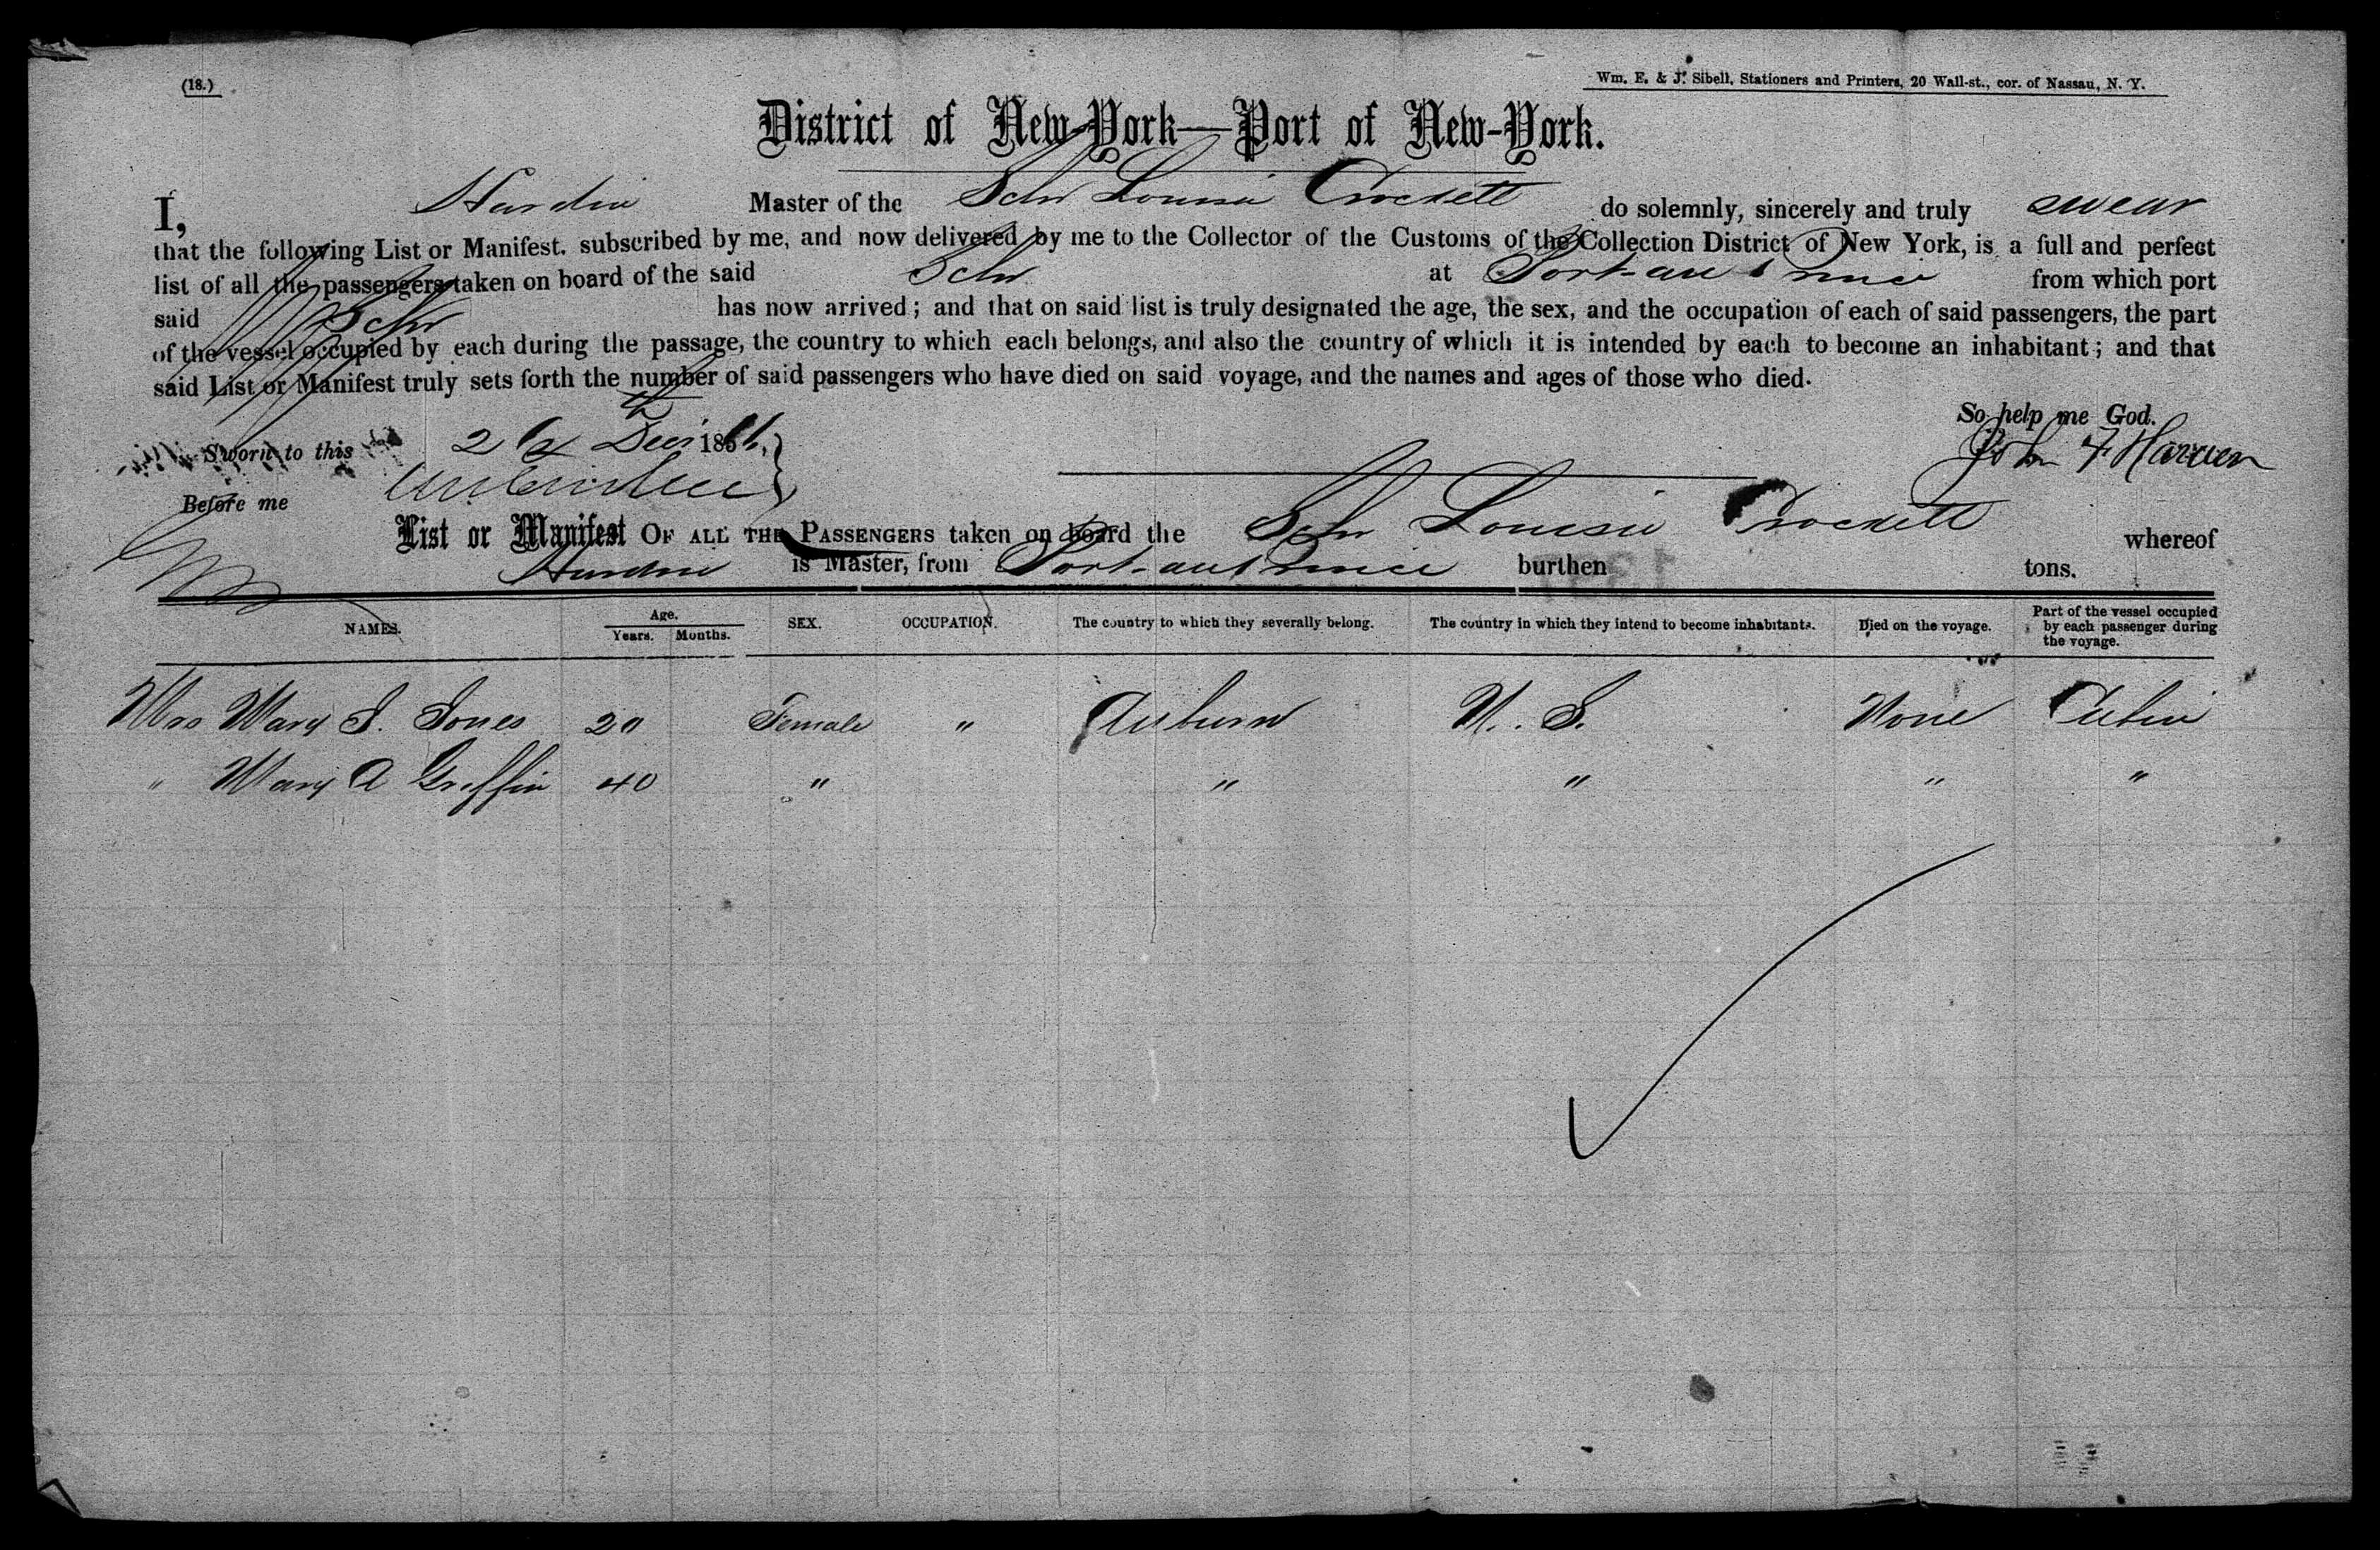 (18.)
Wm. E. & J. Sibell, Stationers and Printers, 20 Wall-st., cor. of Nassau, N. Y.
District of New-York—Port of New-York.
I, Hardin Master of the Schr Louisa Crockett do solemnly, sincerely and truly swear
that the following List or Manifest. subscribed by me, and now delivered by me to the Collector of the Customs of the Collection District of New York, is a full and perfect
list of all the passengers taken on board of the said Schr at Port-au Prince from which port
said Schr has now arrived; and that on said list is truly designated the age, the sex, and the occupation of each of said passengers, the part
of the vessel occupied by each during the passage, the country to which each belongs, and also the country of which it is intended by each to become an inhabitant; and that
said List or Manifest truly sets forth the number of said passengers who have died on said voyage, and the names and ages of those who died.
So help me God.
Sworn to this Decr 186
John F
Before me
List or Manifest OF ALL THE PASSENGERS taken on board the Schr Louisa Crockett whereof
Hardin is Master, from Port-au Prince burthen tons.
NAMES. Age. Years. Months. SEX. OCCUPATION. The country to which they severally belong. The country in which they intend to become inhabitants. Died on the voyage. Part of the vessel occupied by each passenger during the voyage.
Mrs Mary S. Jones 20 Female " Auburn U. S. None Cabin
" Mary A Griffin 40 " " " " "